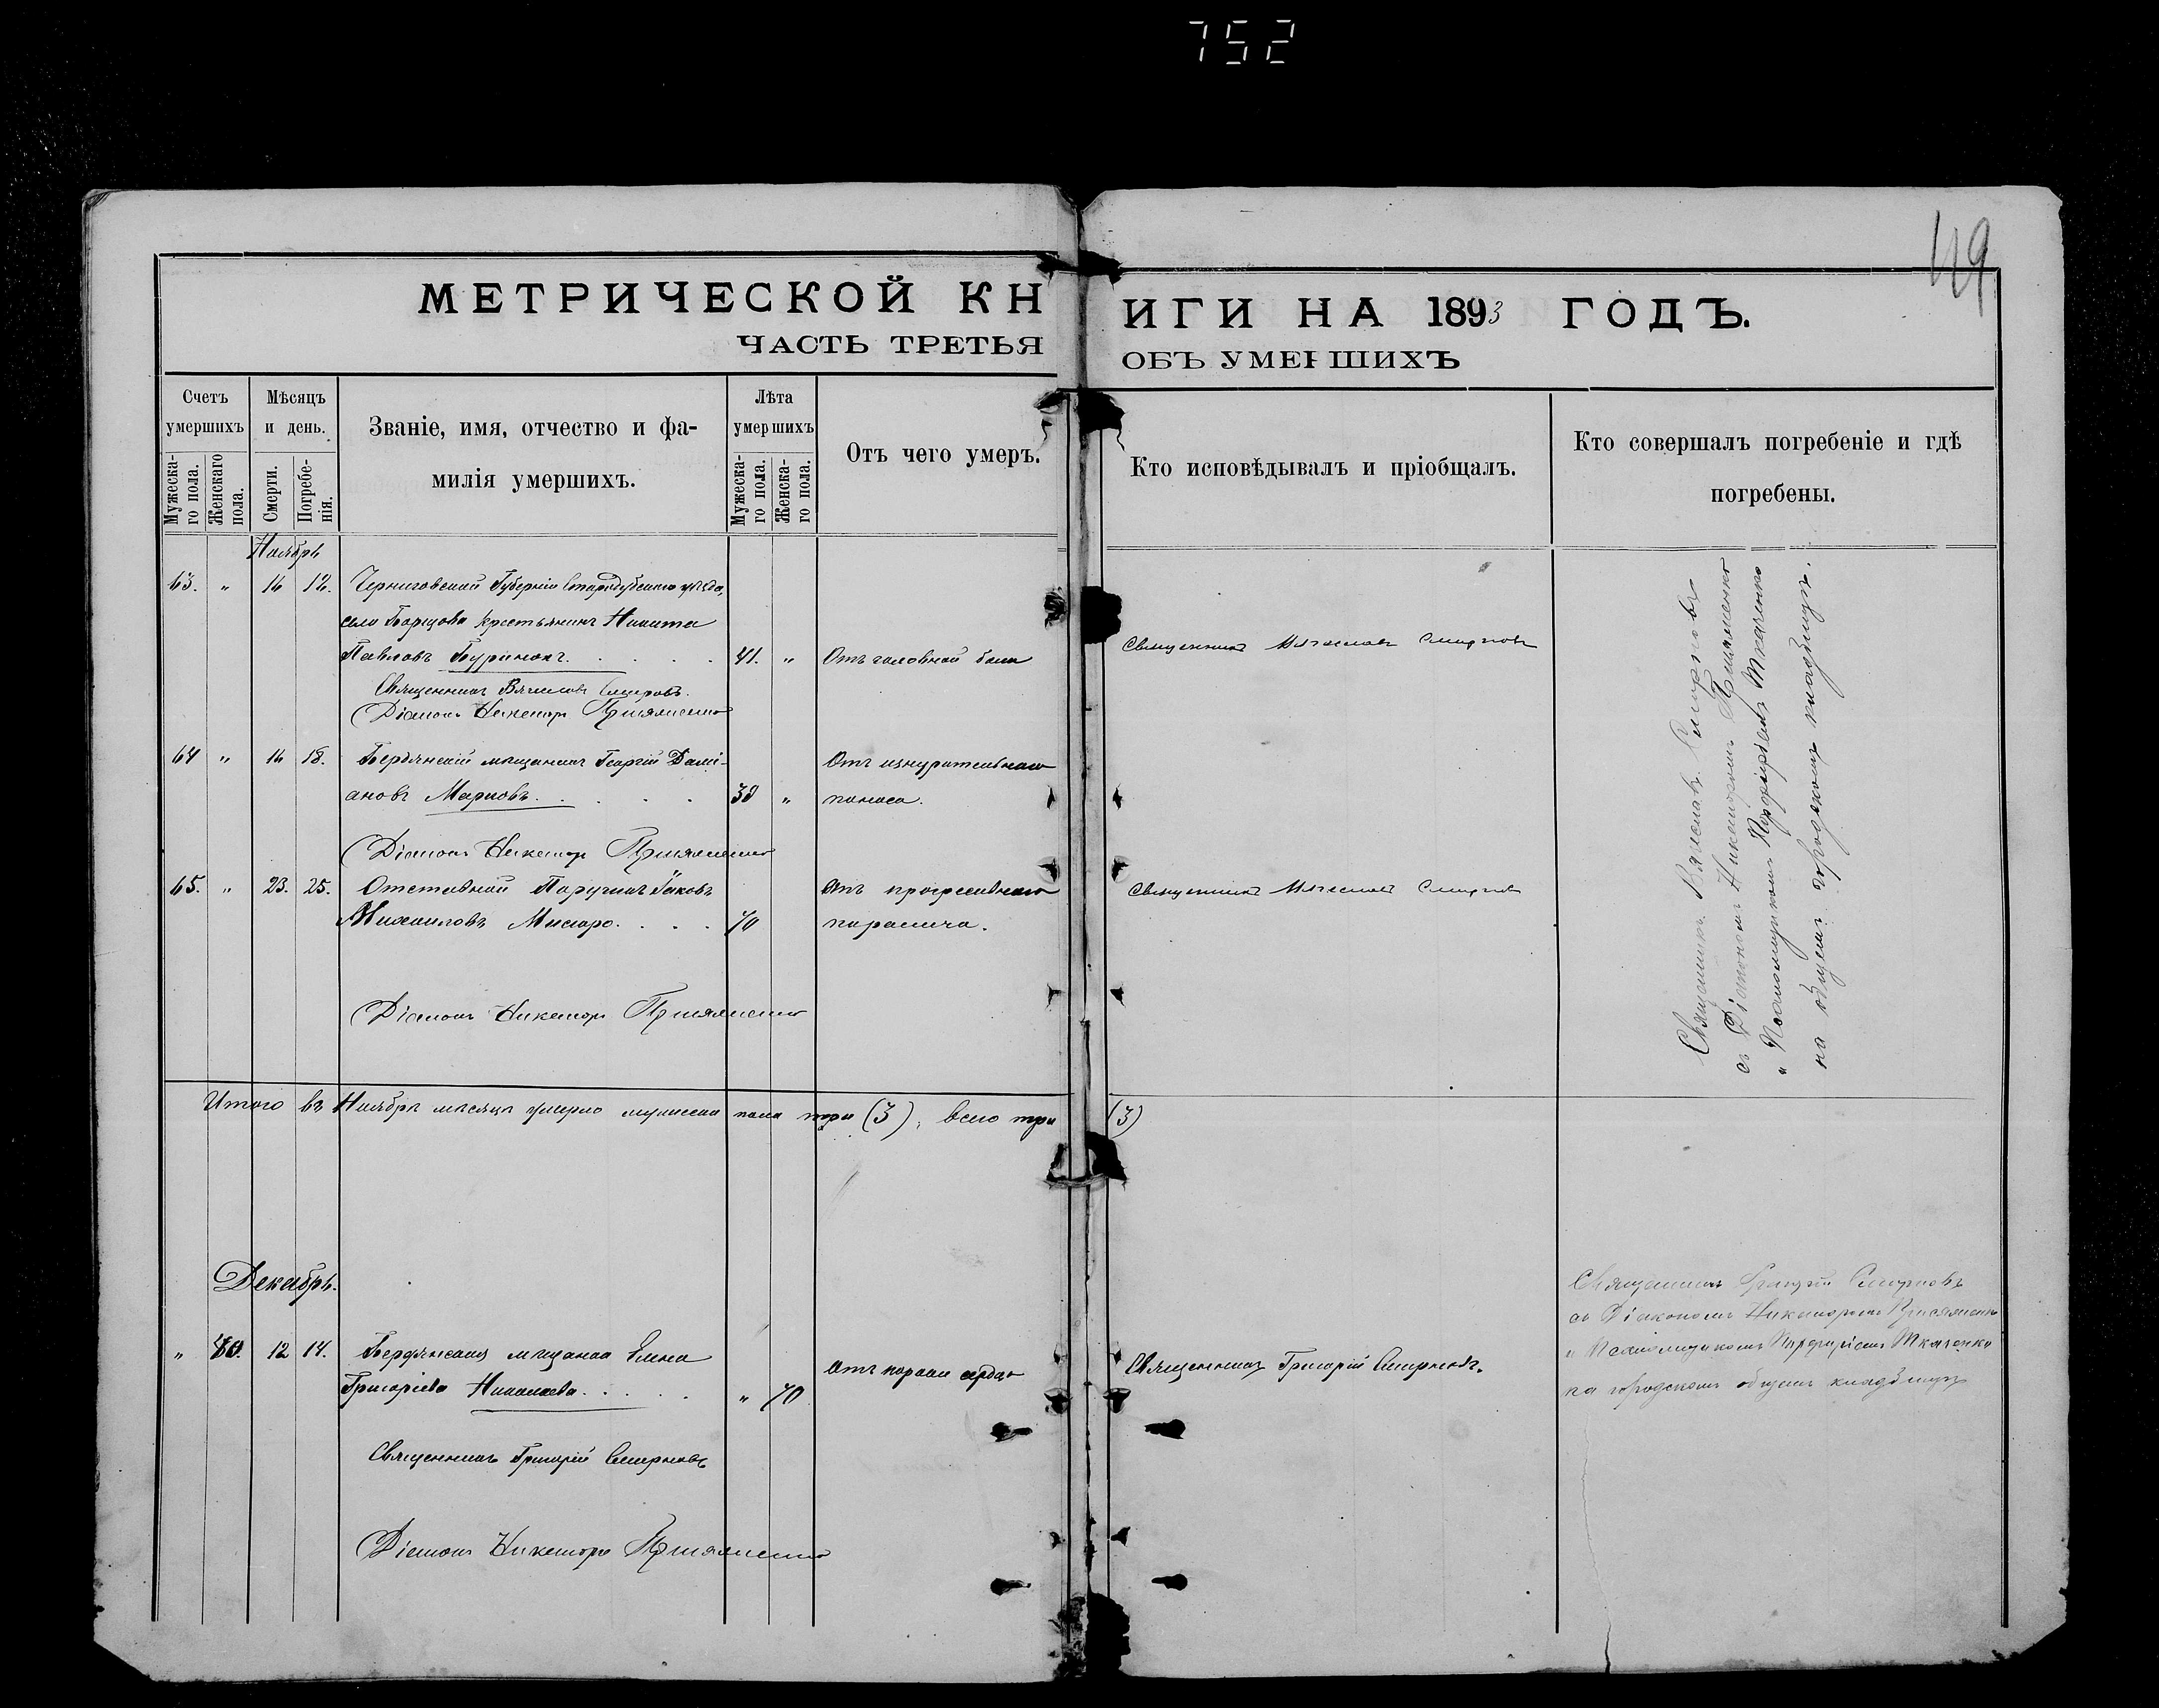 752
119
МЕТРИЧЕСКОЙ КНИГИ НА 1893 ГОДЪ.
ЧАСТЬ ТРЕТЬЯ ОБЪ УМЕРШИХЪ
Счетъ умершихъ
Мужеска-го пола.
Женскаго пола.
Мѣсяцъ и день.
Смерти.
Погребе-нія.
Званіе, имя, отчество и фа-
милія умершихъ.
Лѣта умершихъ
Мужеска-го пола.
Женска-го пола.
Отъ чего умеръ.
Кто исповѣдывалъ и пріобщалъ.
Кто совершалъ погребеніе и гдѣ
погребены.
Ноябрь
63. " 12. Черниговской Губерніи Стародубскаго уѣзда,
села Борщова крестьянинъ Никита
Павловъ 41. " Отъ головной боли
Священникъ Вячеславъ Смирновъ
Священникъ Вячеславъ Смирновъ.
Діаконъ Никаноръ Присяженко
64 " 16 18. Бердянскій мѣщанинъ Георгій Дамі-
ановъ Марковъ. 38 " Отъ изнурительнаго
поноса.
Діаконъ Никаноръ Присяженко
65. " 23. 25. Отставной Поручикъ Іаковъ
Михаиловъ 70 Отъ прогрессивнаго
паралича.
Священникъ Вячеславъ Смирновъ
Діаконъ Никаноръ Присяженко
Священникъ Вячеславъ Смирновъ
съ Діакономъ Никаноромъ Присяженко
и Псаломщикомъ Порфиріемъ Ткаченко
на общемъ городскомъ кладбищѣ.
Итого въ Ноябрѣ мѣсяцѣ умерло мужескаго пола три (3), всего три (3)
Декабрь.
" 12 14. Бердянская мѣщанка Елена
Григоріева Николаева. " 70 Отъ порока сердца
Священникъ Григорій Смирновъ.
Священникъ Григорій Смирновъ
съ Діакономъ Никаноромъ Присяженко
и Псаломщикомъ Порфиріемъ Ткаченко
на городскомъ общемъ кладбищѣ
Священникъ Григорій Смирновъ
Діаконъ Никаноръ Присяженко